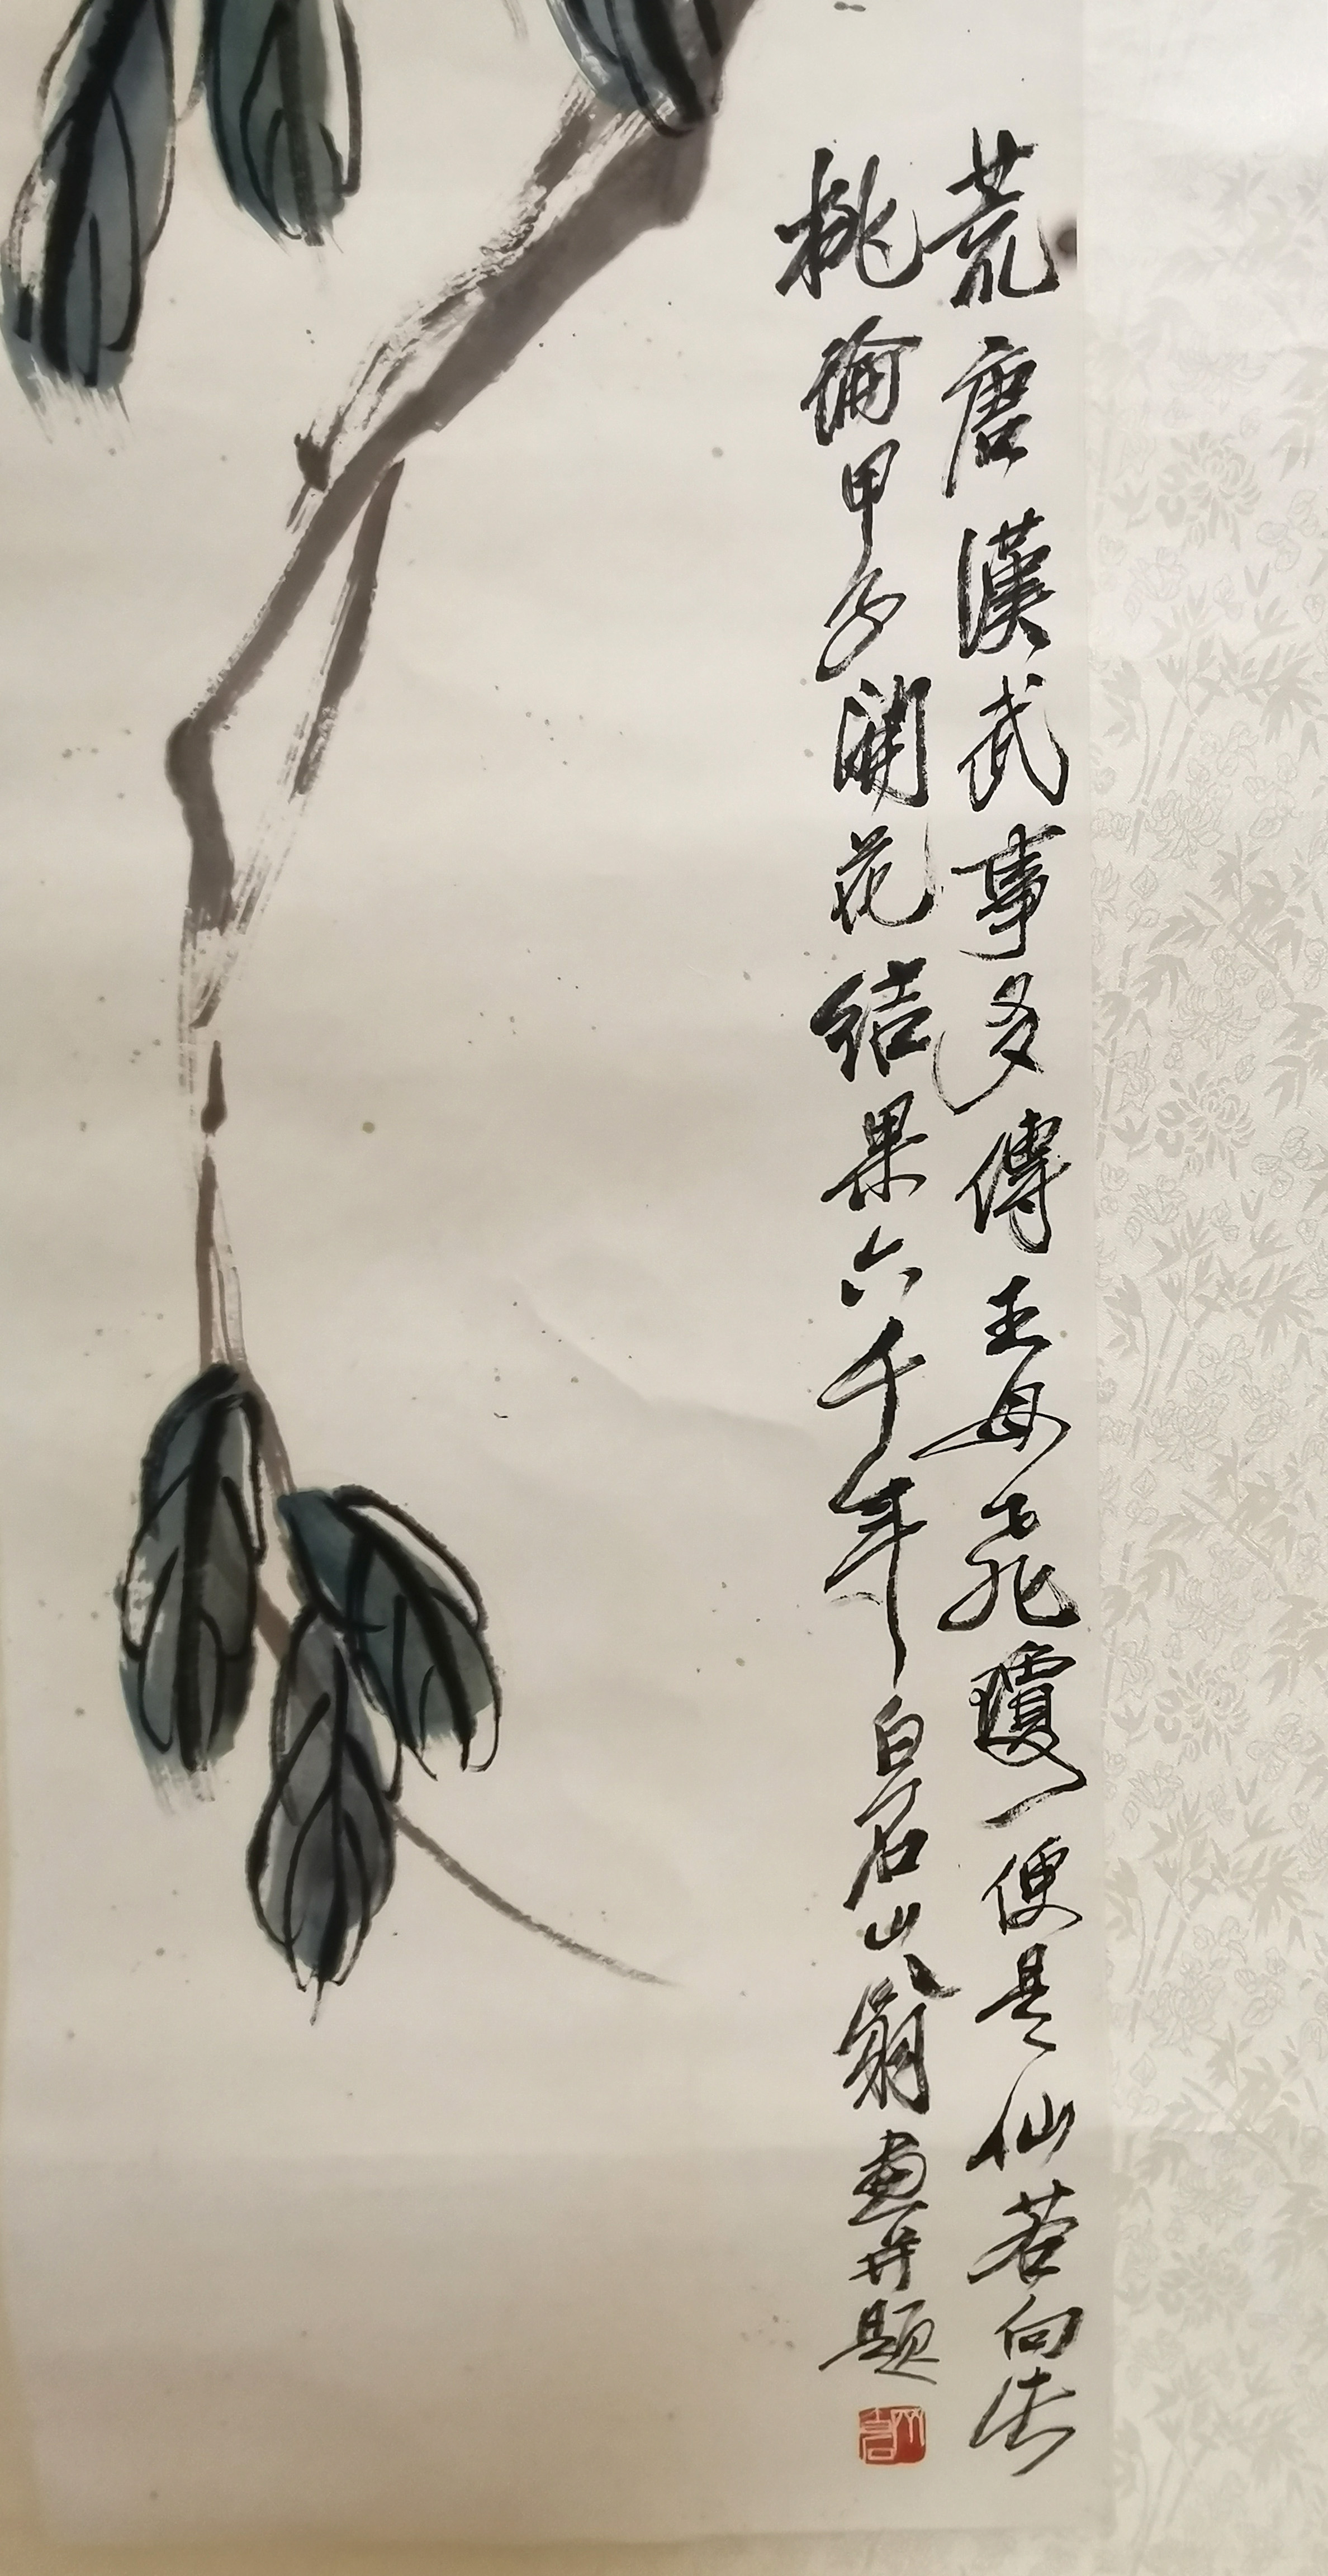 荒唐漢武事多傳王母飛瓊便是仙若向
桃論甲子開花結果六千年白石山翁畫并題